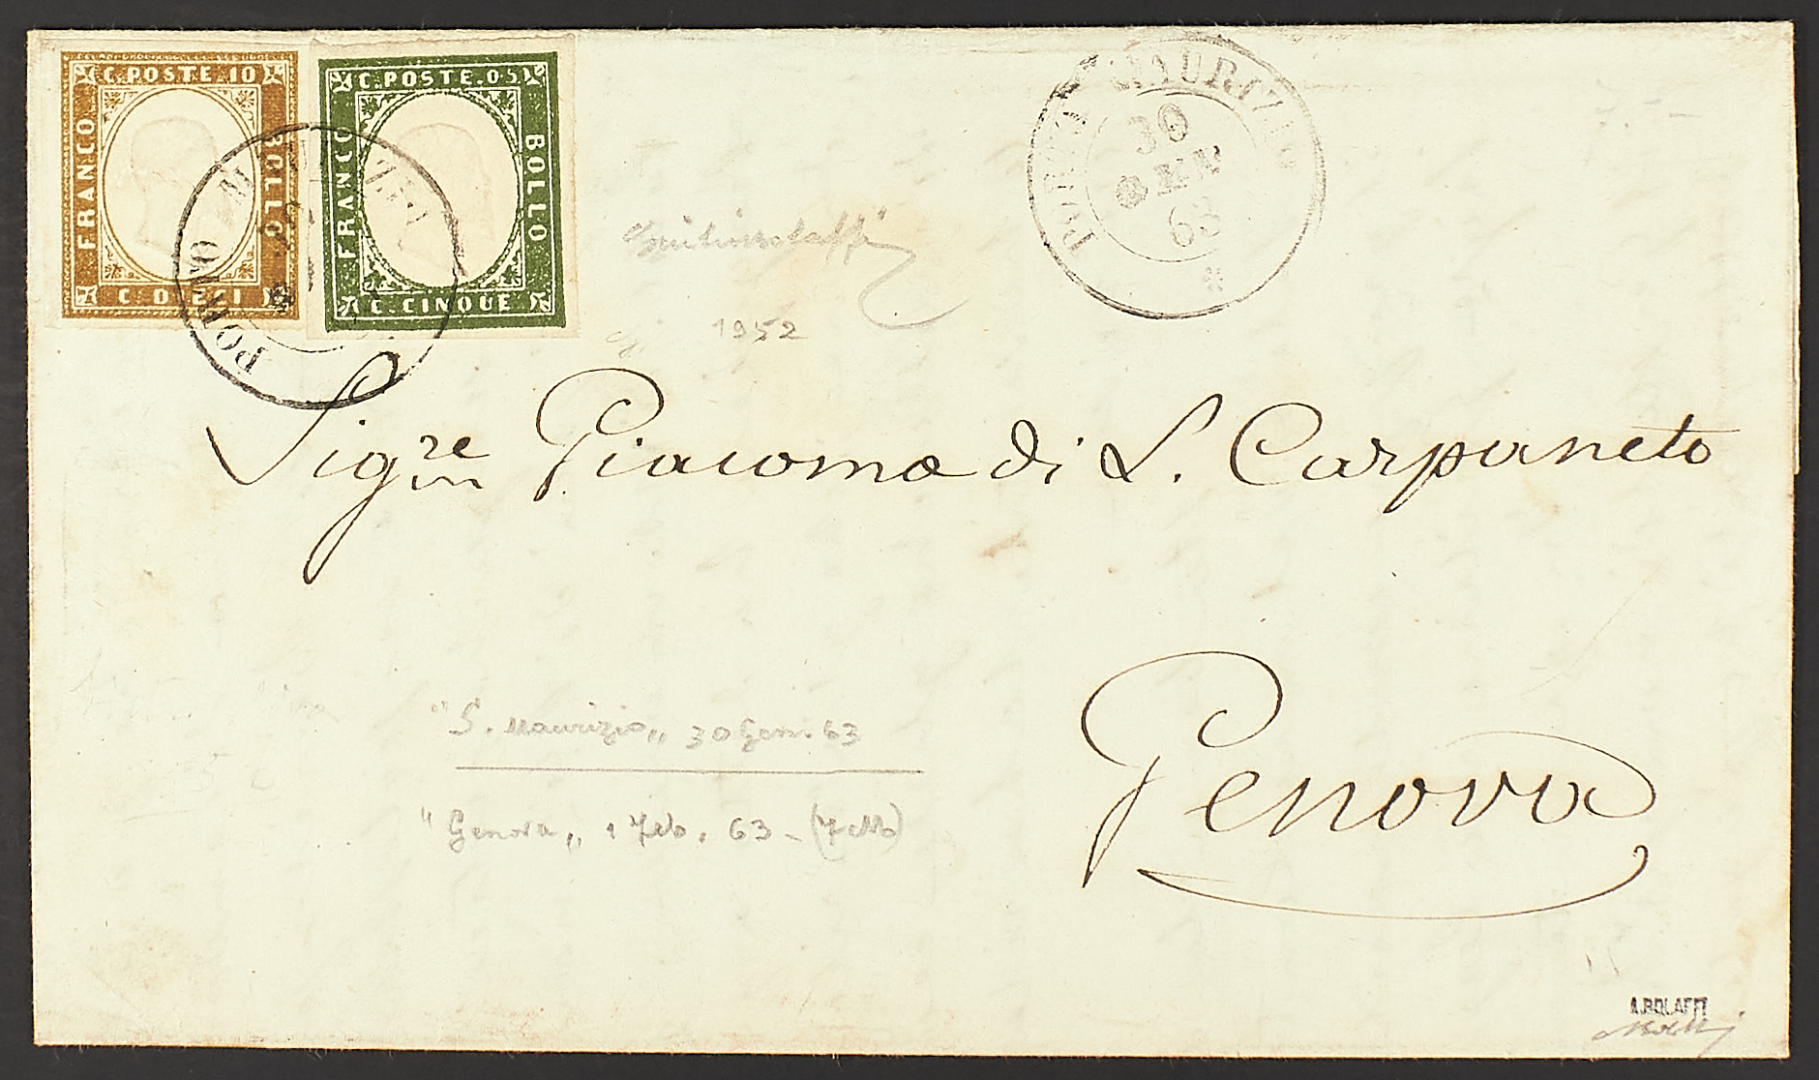 C. POSTE. 10
FRANCO
BOLLO
C. DIECI
C. POSTE. 05
FRANCO
BOLLO
C. CINQUE
PORTO MAURIZIO
PORTO MAURIZIO
30
GEN
63
1952
Sigre Giacomo di L. Carpaneto
Genova
"S. Maurizio„ 30 Gen. 63
"Genova„ 1 Feb. 63 -
15
A.BOLAFFI